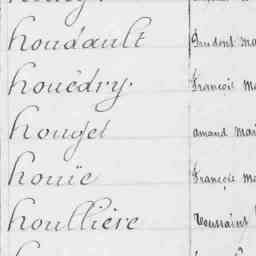 houdault Prudent
houèdry. François
houget amand
houïe François
houllière Toussaint